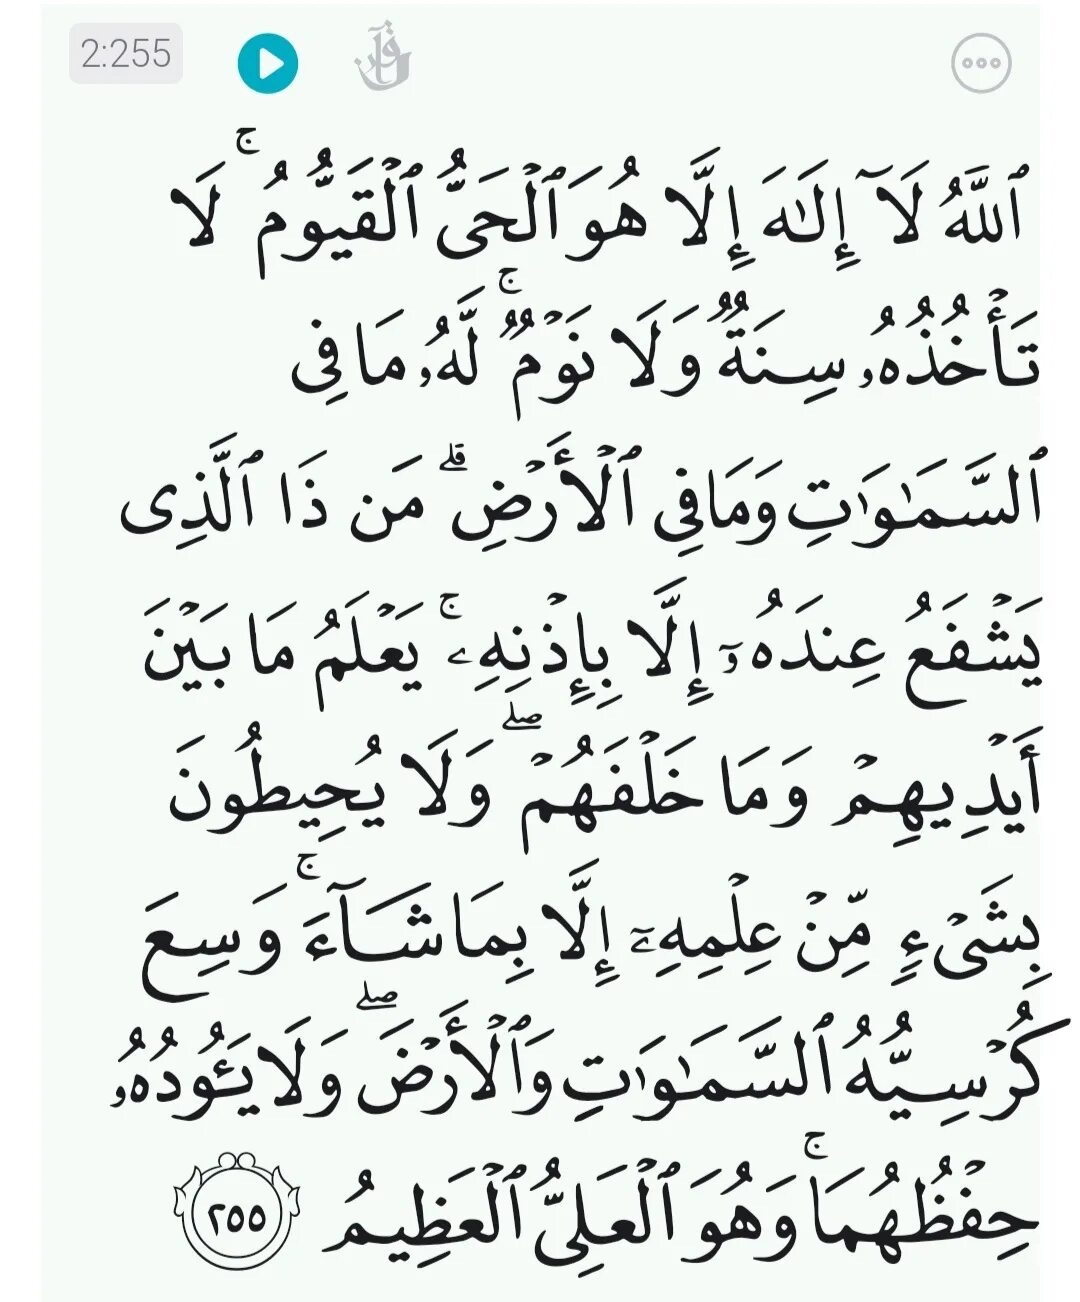 2:255
قرآن
ٱللَّهُ لَآ إِلَـٰهَ إِلَّا هُوَ ٱلْحَىُّ ٱلْقَيُّومُ ۚ لَا
تَأْخُذُهُۥ سِنَةٌ وَلَا نَوْمٌ ۚ لَّهُۥ مَا فِى
ٱلسَّمَـٰوَٰتِ وَمَا فِى ٱلْأَرْضِ ۗ مَن ذَا ٱلَّذِى
يَشْفَعُ عِندَهُۥٓ إِلَّا بِإِذْنِهِۦ ۚ يَعْلَمُ مَا بَيْنَ
أَيْدِيهِمْ وَمَا خَلْفَهُمْ ۖ وَلَا يُحِيطُونَ
بِشَىْءٍ مِّنْ عِلْمِهِۦٓ إِلَّا بِمَا شَآءَ ۚ وَسِعَ
كُرْسِيُّهُ ٱلسَّمَـٰوَٰتِ وَٱلْأَرْضَ ۖ وَلَا يَـُٔودُهُۥ
حِفْظُهُمَا ۚ وَهُوَ ٱلْعَلِىُّ ٱلْعَظِيمُ ٢٥٥